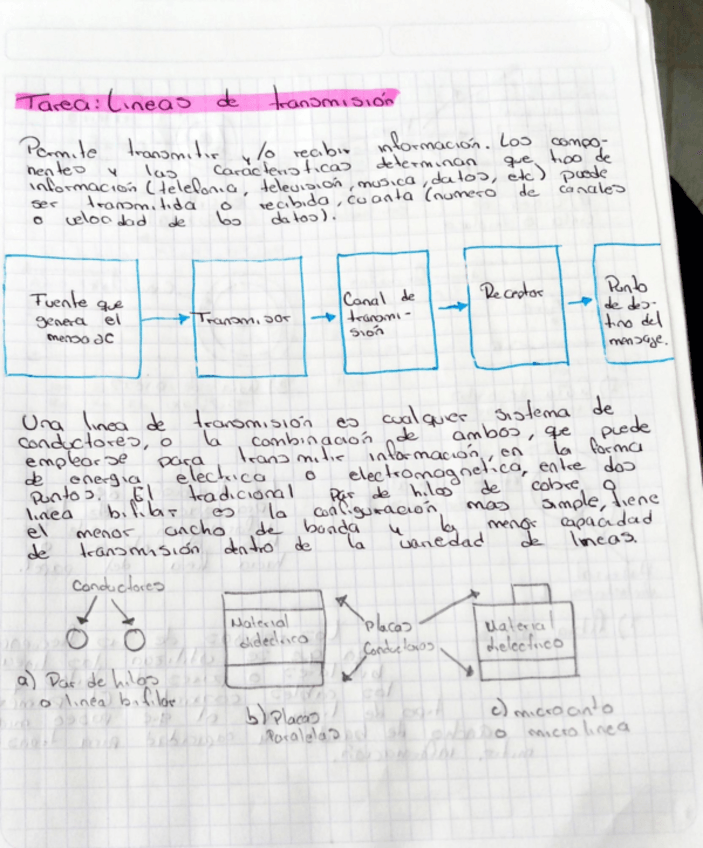 Tarea: Lineas de transmisión
Permite transmitir y/o recibir información. Los compo-
nentes y las caracteristicas determinan que tipo de
información (telefonia, television, musica, datos, etc) puede
ser transmitida o recibida, cuanta (numero de canales
o velocidad de los datos).
Fuente que
genera el
mensaje
Transmisor
Canal de
transmi-
sión
Receptor
Punto
de des-
tino del
mensaje.
Una linea de transmisión es cualquier sistema de
conductores, o la combinación de ambos, que puede
emplearse para transmitir información, en la forma
de energia electrica o electromagnetica, entre dos
puntos. El tradicional par de hilos de cobre, o
linea bifilar es la configuración mas simple, tiene
el menor ancho de banda y la menor capacidad
de transmisión dentro de la variedad de lineas.
Conductores
a) Par de hilos
o linea bifilar
Material
dielectrico
b) Placas
Paralelas
Placas
Conductoras
Material
dielectrico
c) microcinta
o microlinea